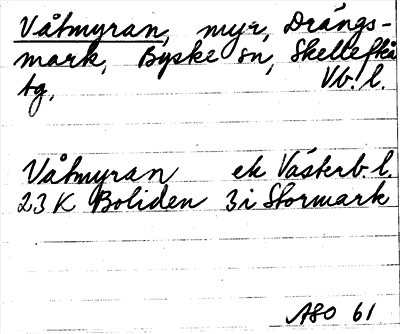 Våtmyran, myr, Drängs-
mark, Byske sn, Skellefteå
tg, Vb. l.
Våtmyran ek Västerb. l.
23 K Boliden 3 i Stormark
ASO 61